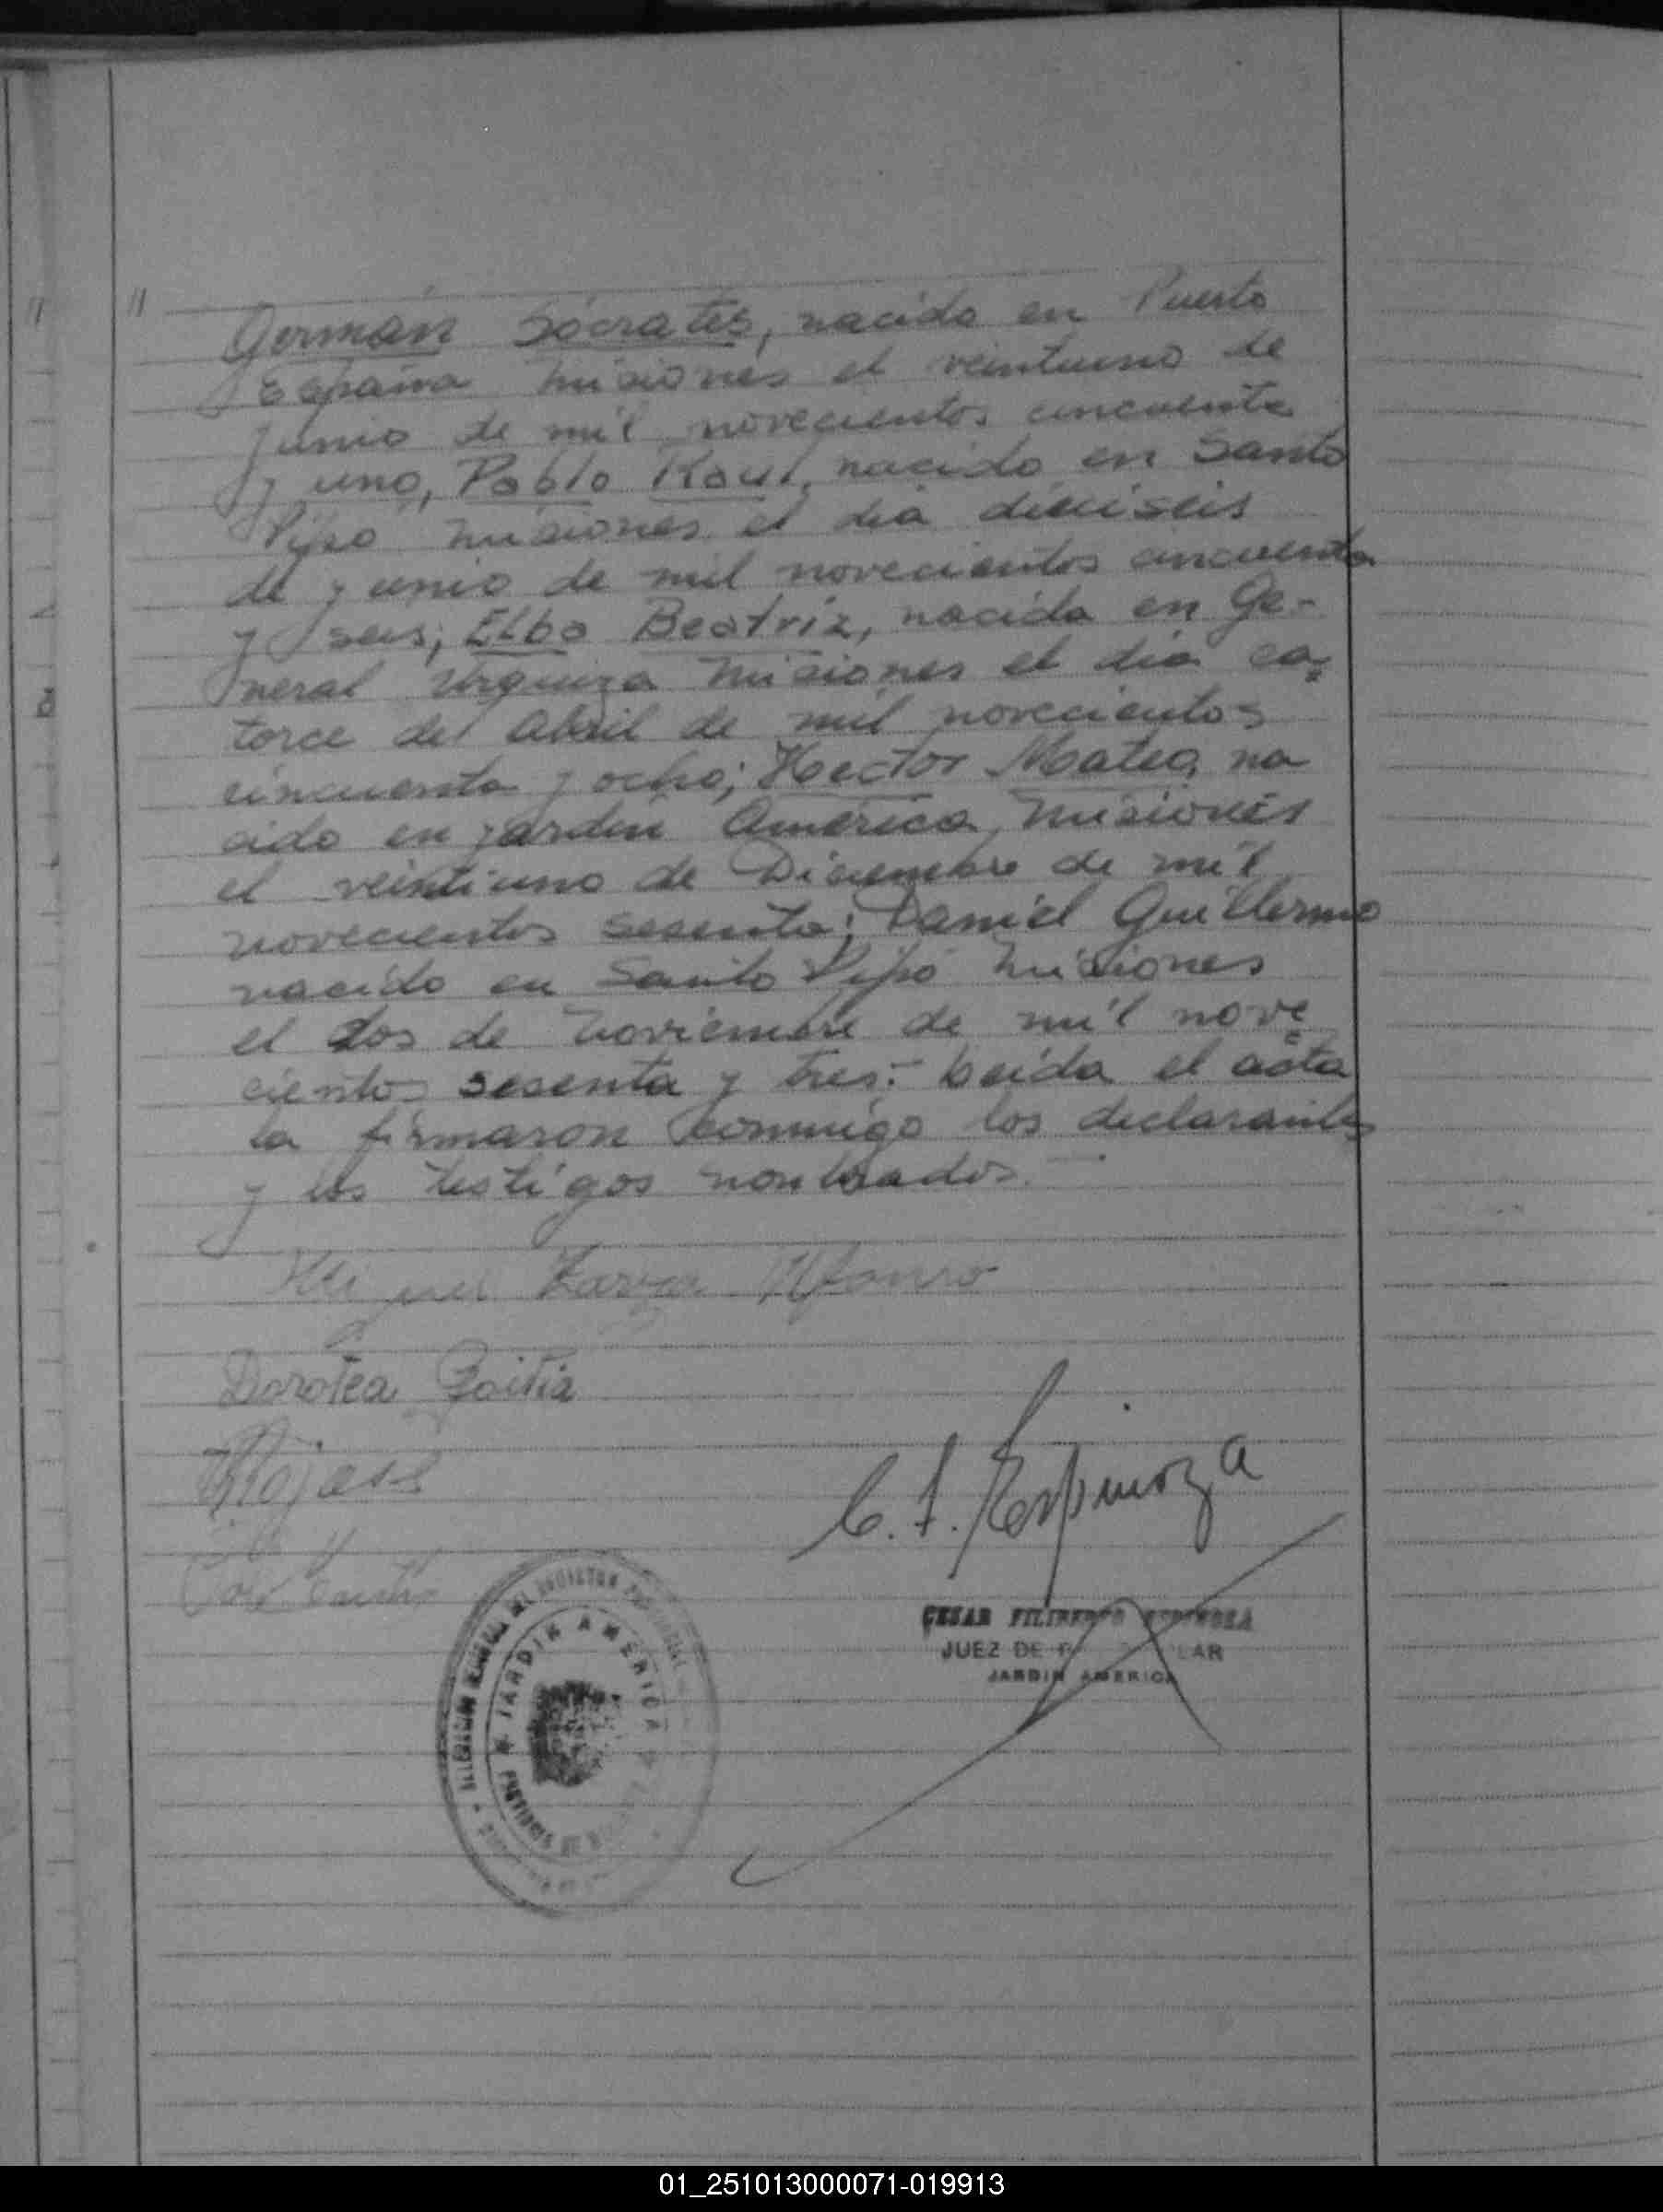 " "
Germán Sócrates, nacido en Puerto
España Misiones el veintiuno de
junio de mil novecientos cincuenta
y uno, Pablo Raul, nacido en Santo
Pipo Misiones el dia dieciseis
de junio de mil novecientos cincuenta
y seis, Elba Beatriz, nacida en Ge-
neral Urquiza Misiones el dia ca=
torce de Abril de mil novecientos
cincuenta y ocho; Hector Mateo, na
cido en jardin America, Misiones
el veintiuno de Diciembre de mil
novecientos sesenta; Daniel Guillermo
nacido en Santo Pipó Misiones
el dos de Noviembre de mil nove=
cientos sesenta y tres.- Leida el acta
la firmaron conmigo los declarantes
y los testigos nombrados.
Zarza Alfonso
Dorotea Goitia
Rojas
C. F. Espinoza
CESAR FILIBERTO ESPINOZA
JUEZ DE LAR
JARDIN AMERICA
JARDIN AMERICA
PROVINCIA DE
01_251013000071-019913